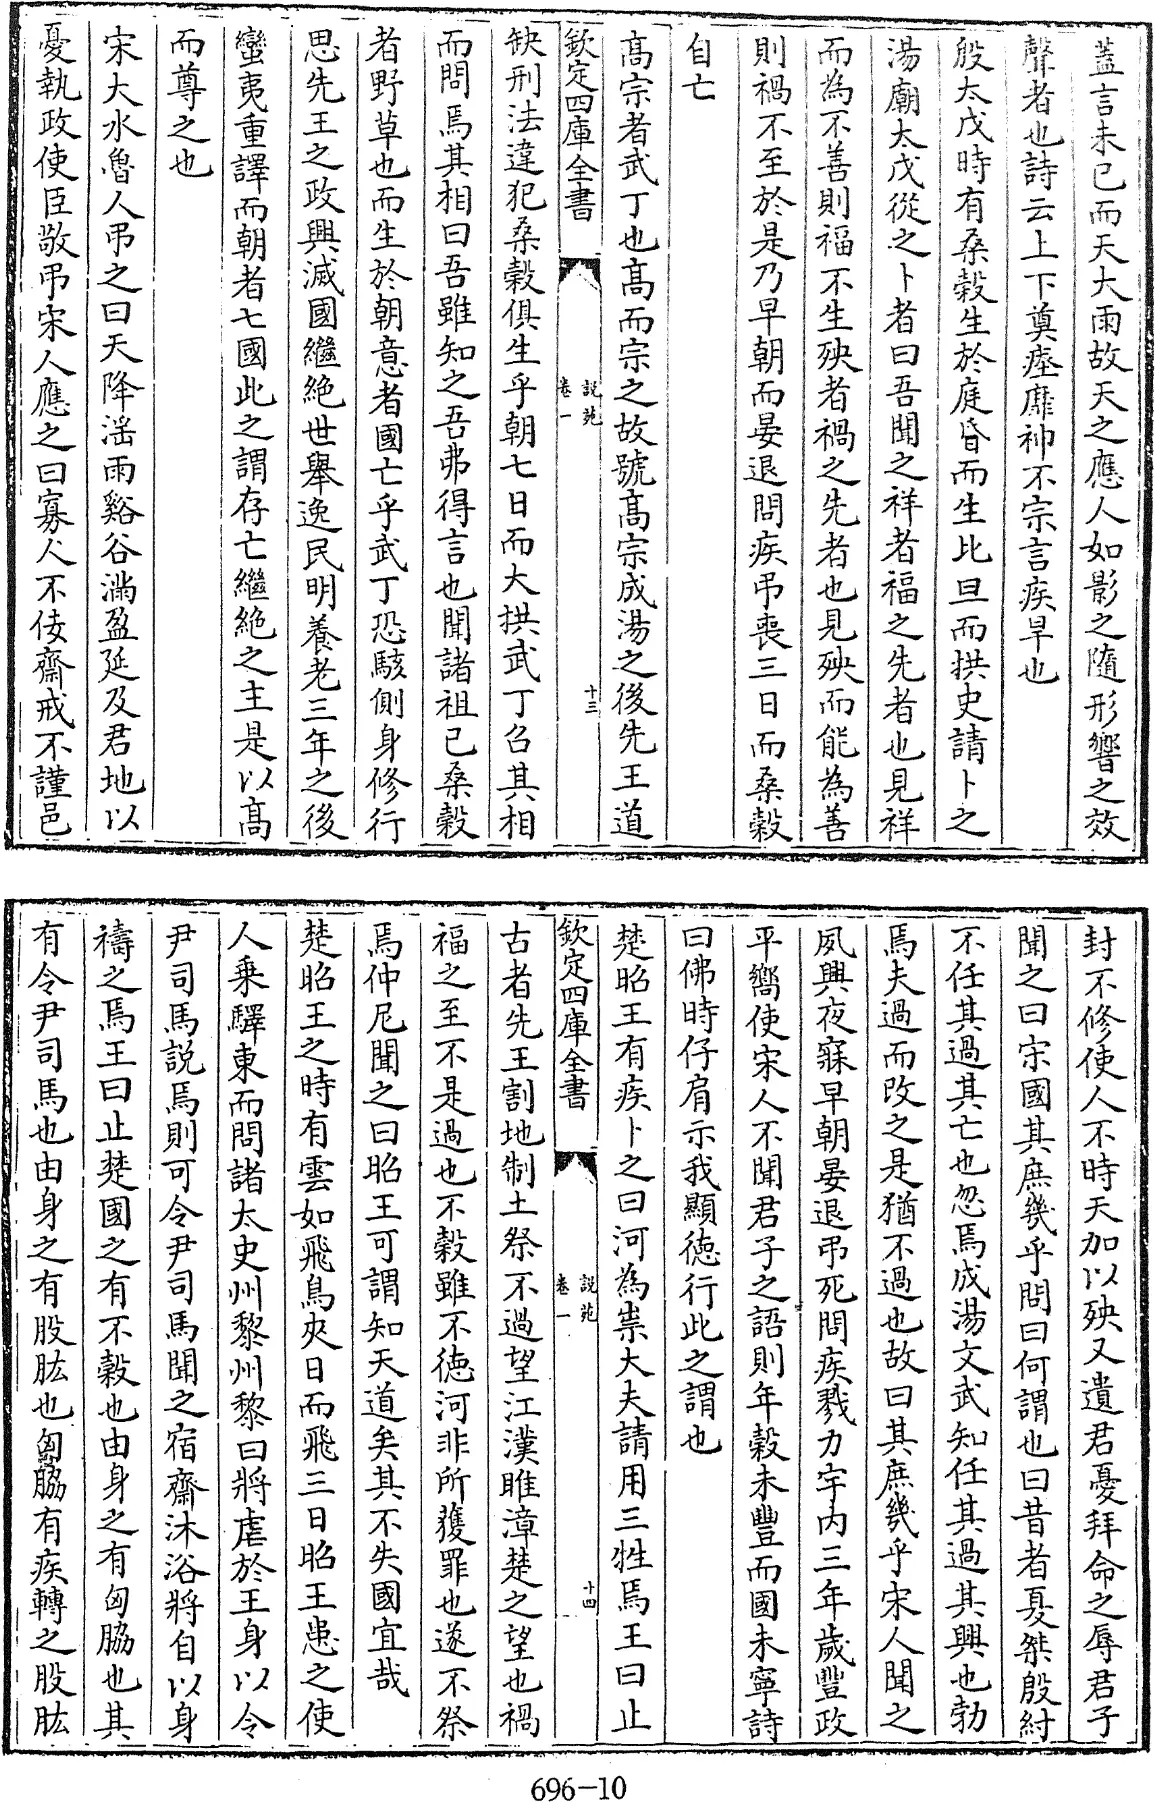 蓋言未已而天大雨故天之應人如影之隨形響之效
聲者也詩云上下奠瘞靡神不宗言疾旱也
殷太戊時有桑榖生於庭昏而生比旦而拱史請卜之
湯廟太戊從之卜者曰吾聞之祥者福之先者也見祥
而為不善則福不生殃者禍之先者也見殃而能為善
則禍不至於是乃早朝而晏退問疾弔喪三日而桑榖
自亡
高宗者武丁也高而宗之故號高宗成湯之後先王道
欽定四庫全書
說苑
卷一
十三
缺刑法違犯桑榖俱生乎朝七日而大拱武丁召其相
而問焉其相曰吾雖知之吾弗得言也聞諸祖已桑榖
者野草也而生於朝意者國亡乎武丁恐駭側身修行
思先王之政興滅國繼絶世舉逸民明養老三年之後
蠻夷重譯而朝者七國此之謂存亡繼絶之主是以高
而尊之也
宋大水魯人弔之曰天降滛雨谿谷滿盈延及君地以
憂執政使臣敬弔宋人應之曰寡人不佞齋戒不謹邑
封不修使人不時天加以殃又遺君憂拜命之辱君子
聞之曰宋國其庶幾乎問曰何謂也曰昔者夏桀殷紂
不任其過其亡也忽焉成湯文武知任其過其興也勃
焉夫過而改之是猶不過也故曰其庶幾乎宋人聞之
夙興夜寐早朝晏退弔死問疾戮力宇内三年歲豐政
平嚮使宋人不聞君子之語則年榖未豐而國未寧詩
曰佛時仔肩示我顯徳行此之謂也
楚昭王有疾卜之曰河為祟大夫請用三牲焉王曰止
欽定四庫全書
說苑
卷一
十四
古者先王割地制土祭不過望江漢睢漳楚之望也禍
福之至不是過也不榖雖不徳河非所獲罪也遂不祭
焉仲尼聞之曰昭王可謂知天道矣其不失國宜哉
楚昭王之時有雲如飛鳥夾日而飛三日昭王患之使
人乘驛東而問諸太史州黎州黎曰將虐於王身以令
尹司馬説焉則可令尹司馬聞之宿齋沐浴將自以身
禱之焉王曰止楚國之有不榖也由身之有匈脇也其
有令尹司馬也由身之有股肱也匈脇有疾轉之股肱
696-10